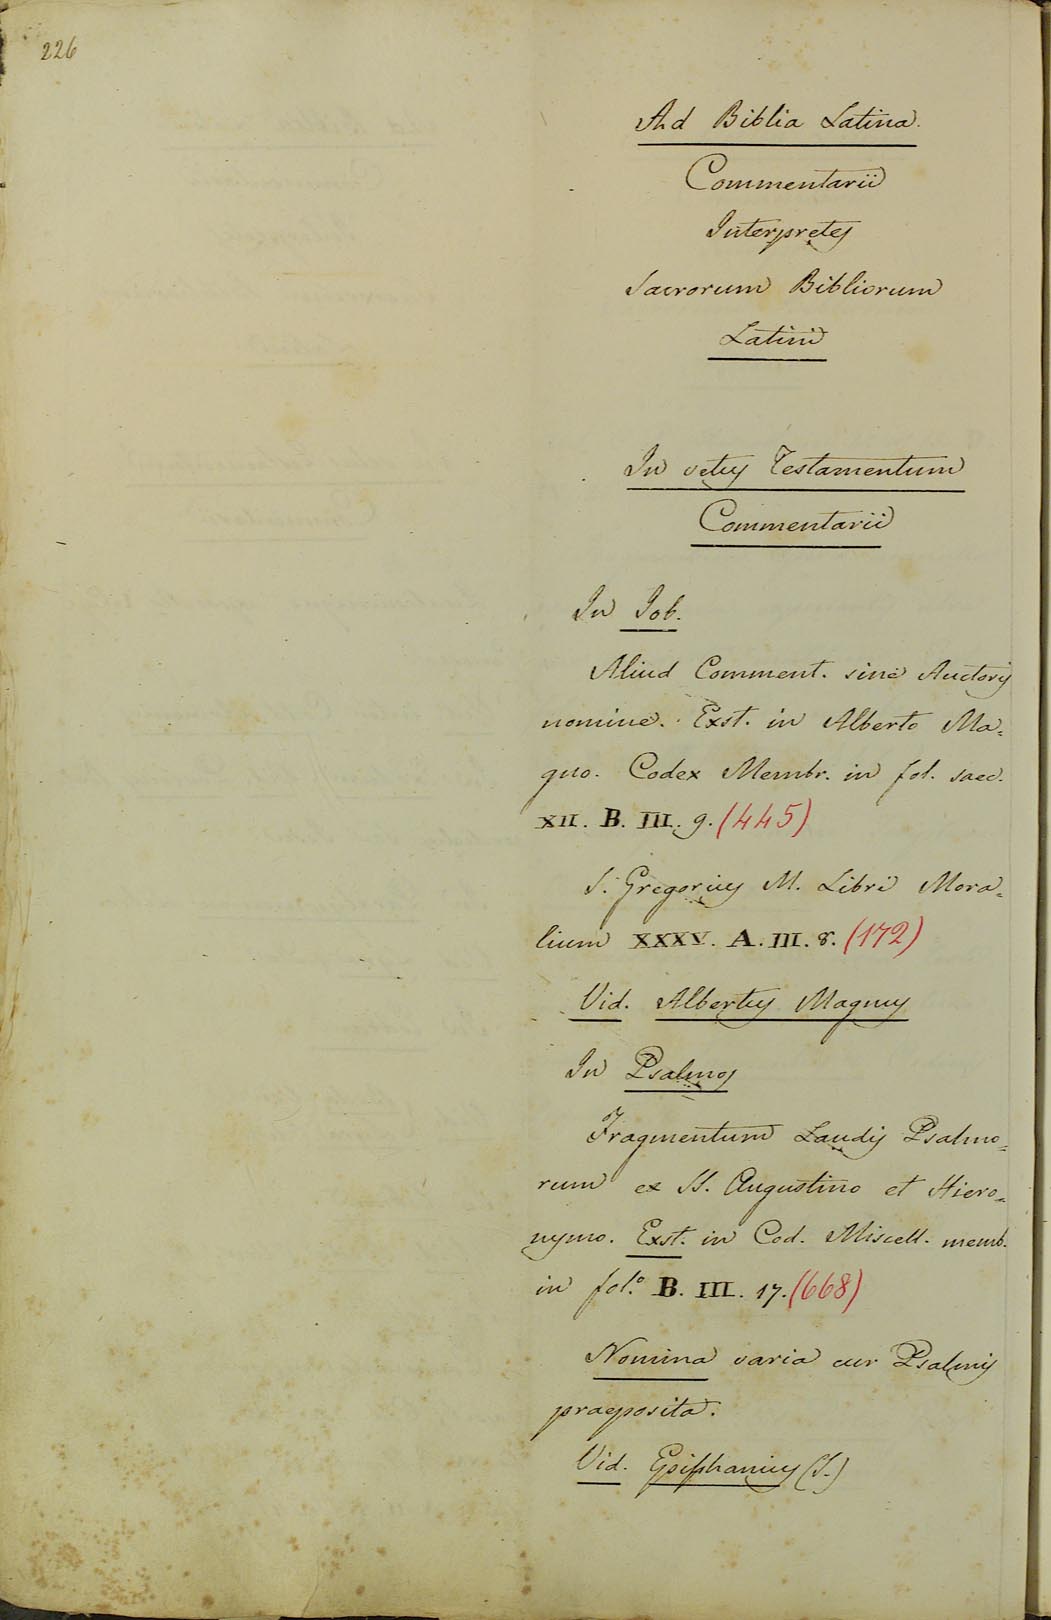 226
Ad Biblia Latina.
Commentarii
Interpretes
Sacrorum Bibliorum
Latini
In vetus Testamentum
Commentarii
In Job.
Aliud Comment. sine Auctoris
nomine. Exst. in Alberto Ma=
gno. Codex Membr. in fol. saec.
XII. B. III. 9. (445)
S. Gregorius M. Libri Mora=
lium XXXV. A. III. 8. (172)
Vid. Albertus Magnus
In Psalmos
Fragmentum Laudis Psalmo=
rum ex SS. Augustino et Hiero=
nymo. Exst. in Cod. Miscell. memb.
in fol.º B. III. 17. (668)
Nomina varia cur Psalmis
praeposita.
Vid. Epiphanius (S.)